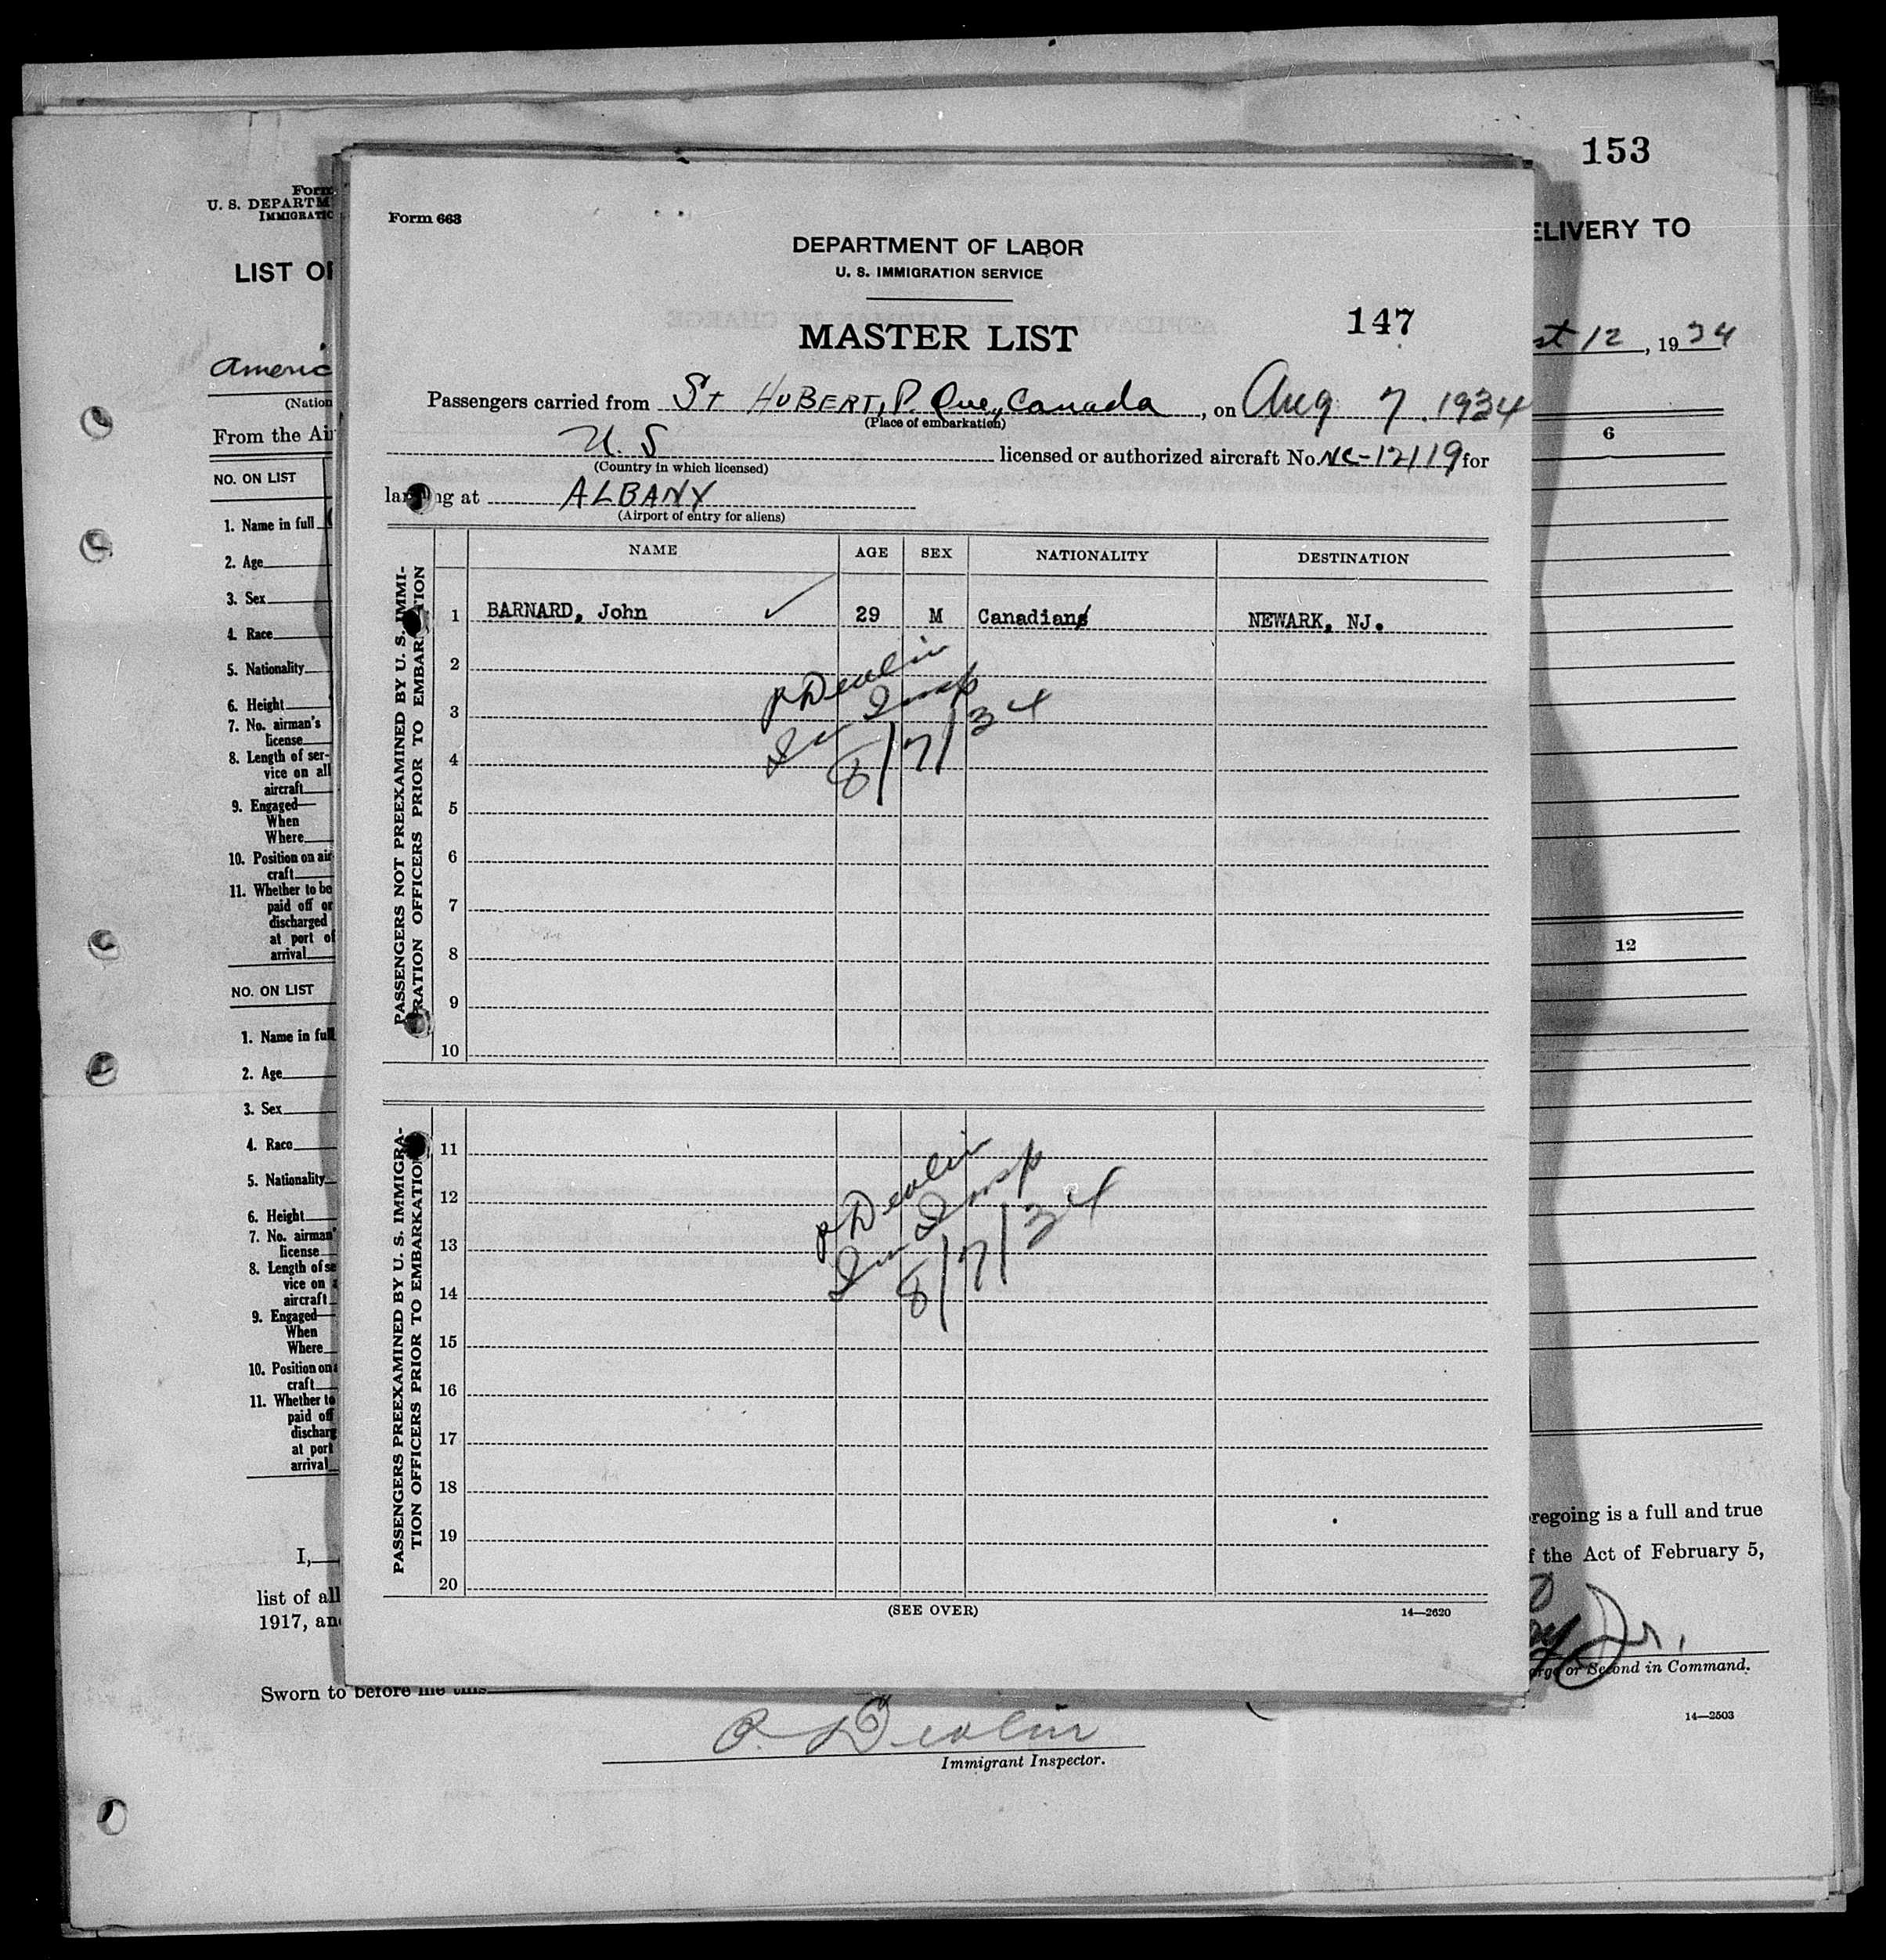 153
Form
U. S. DEPARTM
IMMIGRATIC
ELIVERY TO
LIST OF
st 12, 1934
Americ
(Nation
From the Air
6
NO. ON LIST
1. Name in full
2. Age
3. Sex
4. Race
5. Nationality
6. Height
7. No. airman's
license
8. Length of ser-
vice on all
aircraft
9. Engaged—
When
Where
10. Position on air-
craft
11. Whether to be
paid off or
discharged
at port of
arrival
12
NO. ON LIST
1. Name in full
2. Age
3. Sex
4. Race
5. Nationality
6. Height
7. No. airman'
license
8. Length of se
vice on a
aircraft
9. Engaged—
When
Where
10. Position on a
craft
11. Whether to
paid off
discharg
at port
arrival
I,
list of all
1917, an
Form 663
DEPARTMENT OF LABOR
U. S. IMMIGRATION SERVICE
147
MASTER LIST
Passengers carried from St HUBERT, P. Que, Canada, on Aug 7. 1934
(Place of embarkation)
U. S licensed or authorized aircraft No. NC-12119 for
(Country in which licensed)
landing at ALBANY
(Airport of entry for aliens)
NAME AGE SEX NATIONALITY DESTINATION
PASSENGERS NOT PREEXAMINED BY U. S. IMMI-
RATION OFFICERS PRIOR TO EMBARKATION
1 BARNARD, John ✓ 29 M Canadian NEWARK, NJ.
2
3
4
5
6
7
8
9
10
P Devlin
Im Insp
8/7/34
PASSENGERS PREEXAMINED BY U. S. IMMIGRA-
TION OFFICERS PRIOR TO EMBARKATION
11
12
13
14
15
16
17
18
19
20
P Devlin
Im Insp
8/7/34
(SEE OVER)
14—2620
regoing is a full and true
f the Act of February 5,
Jr.
arge or Second in Command.
Sworn to before me this
14—2503
P. Devlin
Immigrant Inspector.